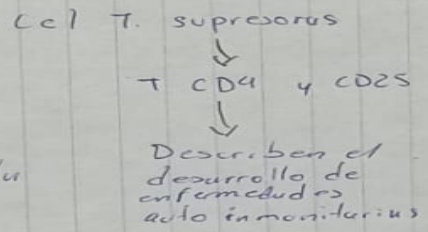 Cel T. supresoras
T CD4 y CD25
Describen el
desarrollo de
enfermedades
auto inmunitarias